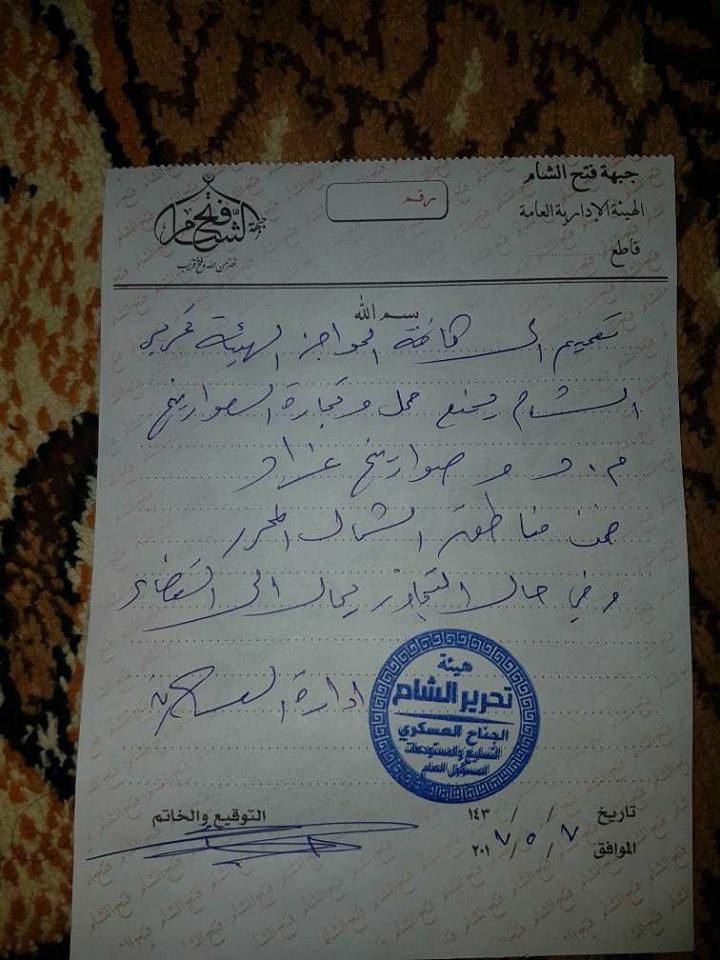 جبهة فتح الشام
الهيئة الإدارية العامة
قاطع
رقم
جبهة فتح الشام
نصر من الله وفتح قريب
بسم الله
تعميم الى كافة الحواجز الهيئة تحرير
الشام يمنع حمل وتجارة الصواريخ
م . د و صواريخ غراد
ضمن مناطق الشمال المحرر
وفي حال التجاوز يحال الى القضاء
ادارة
هيئة
تحرير الشام
الجناح العسكري
التسليح والمستودعات
المسؤول العام
التوقيع والخاتم
تاريخ / / ١٤٣
الموافق ٧ / ٥ / ٢٠١٧